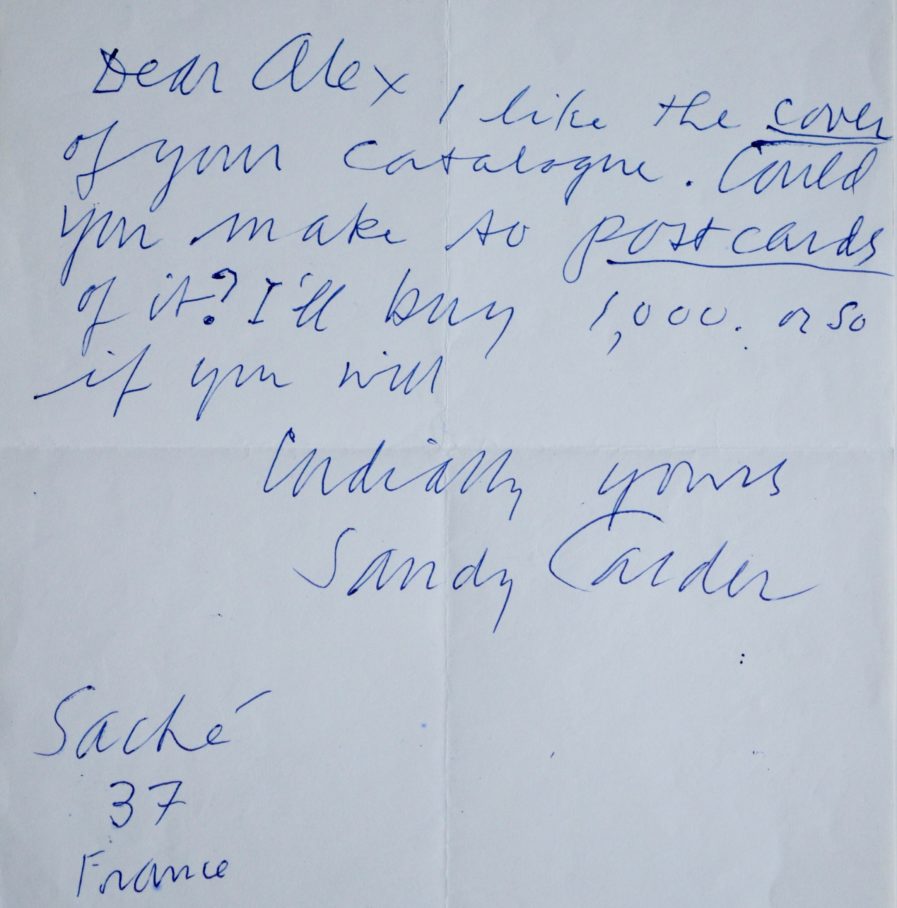 Dear Alex
I like the cover
of your catalogue. Could
you make so postcards
of it? I'll buy 1,000. or so
if you will
Cordially yours
Sandy Calder
Saché
37
France